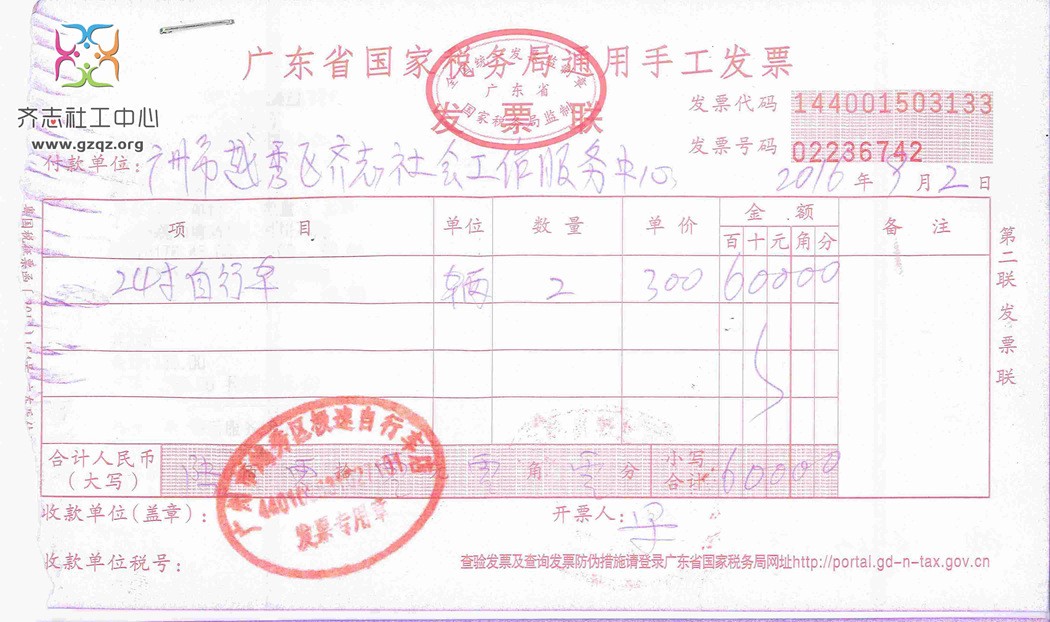 齐志社工中心
www.gzqz.org
广东省国家税务局通用手工发票
发票联
全国统一发票监制章
广东省
国家税务局监制
发票代码 144001503133
发票号码 02236742
付款单位:广州市越秀区齐志社会工作服务中心
2016年3月2日
项目 单位 数量 单价 金额 备注
百十元角分
24寸自行车 辆 2 300 60000
第二联 发票联
合计人民币(大写) 陆佰零拾零元零角零分 小写合计 60000
广州市越秀区极速自行车店
发票专用章
收款单位(盖章):
开票人:
收款单位税号:
查验发票及查询发票防伪措施请登录广东省国家税务局网址http://portal.gd-n-tax.gov.cn